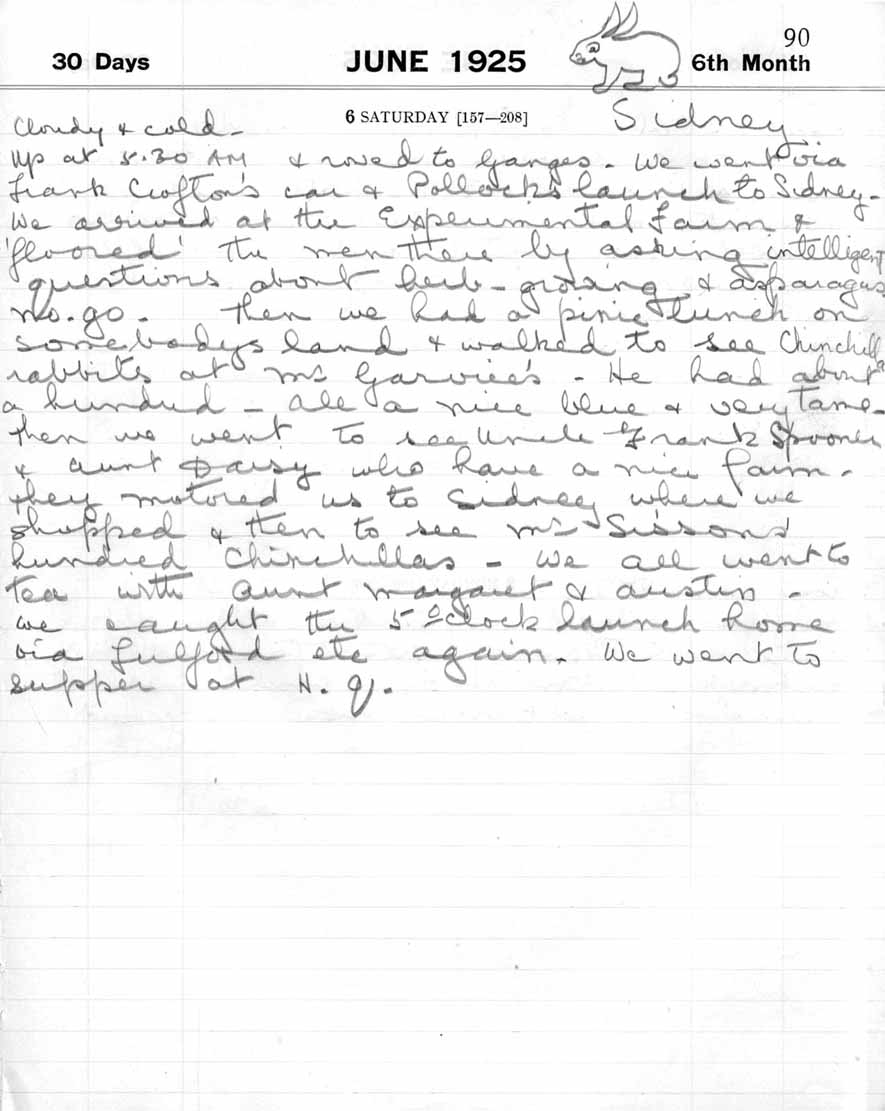 90
30 Days JUNE 1925 6th Month
6 SATURDAY [157—208] Sidney
Cloudy & cold -
Up at 5.30 AM & rowed to Ganges. We went via
Frank Crofton's car & Pollock's launch to Sidney.
We arrived at the Experimental Farm &
'floored' the men there by asking intelligent
questions about herb-growing & asparagus
no. go. Then we had a picnic lunch on
somebodys land & walked to see Chinchilla
rabbits at Mr Garvice's - He had about
a hundred - all a nice blue & very tame.
Then we went to see Uncle Frank Spooner
& Aunt Daisy who have a nice farm.
They motored us to Sidney where we
shopped & then to see Mr Sissons'
hundred Chinchillas - We all went to
tea with Aunt Margaret & Austin -
We caught the 5 o'clock launch home
via Fulford etc again. We went to
supper at H. Q.